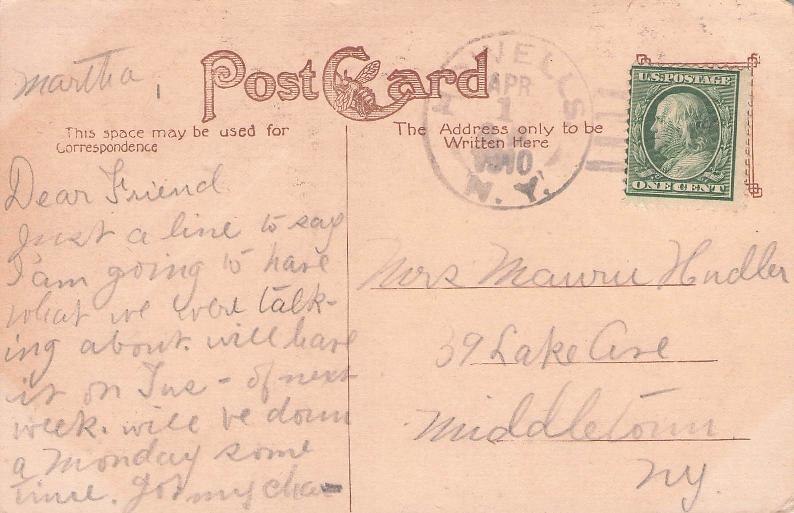 Martha,
Post Card
This space may be used for
Correspondence
The Address only to be
Written Here
HOWELLS
APR
1
1910
N. Y.
U.S. POSTAGE
ONE CENT
Dear Friend
Just a line to say
I am going to have
what we were talk-
ing about. will have
it on Tus - of next
week. will be down
a Monday some
time. Got my
Mrs
39 Lake Ave
Middletown
NY.